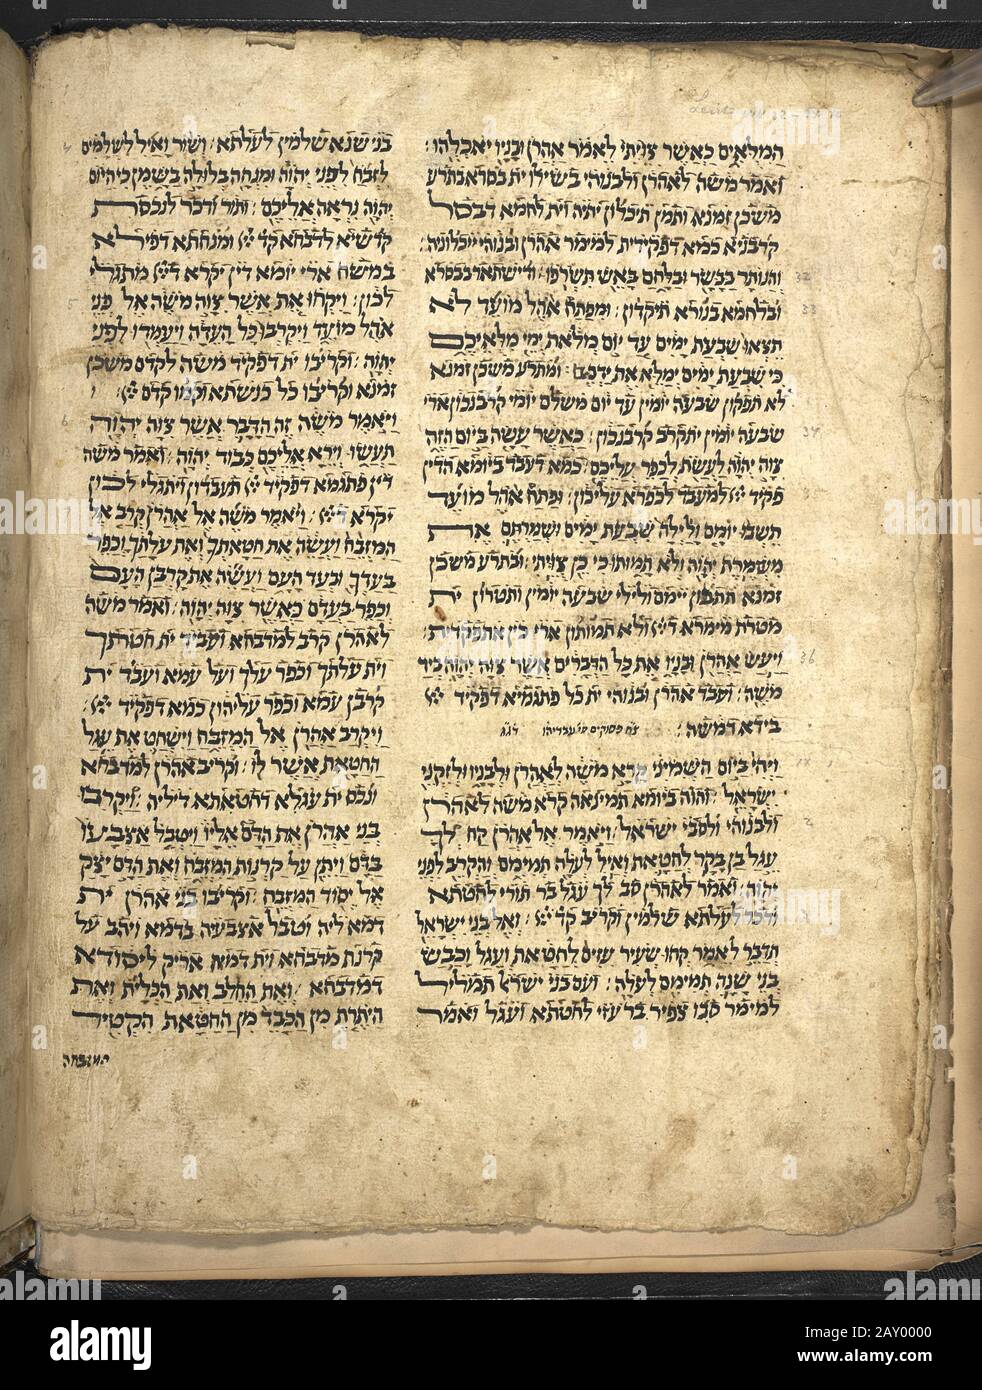 המלאים כאשר צויתי לאמר אהרן ובניו יאכלהו׃
ואמר משה לאהרן ולבנוהי בשילו ית בסרא בתרע
משכן זמנא ותמן תיכלון יתיה וית לחמא דבסל
קרבניא כמא דפקידית למימר אהרן ובנוהי ייכלוניה׃
והנותר בבשר ובלחם באש תשרפו׃ ודישתאר בבסרא 32
ובלחמא בנורא תיקדון׃ ומפתח אהל מועד לא 33
תצאו שבעת ימים עד יום מלאת ימי מלאיכם
כי שבעת ימים ימלא את ידכם׃ ומתרע משכן זמנא
לא תפקון שבעה יומין עד יום משלם יומי קרבנכון ארי
שבעה יומין יתקרב קרבנכון׃ כאשר עשה ביום הזה 34
צוה יהוה לעשת לכפר עליכם׃ כמא דעבד ביומא הדין
פקיד למעבד לכפרא עליכון׃ ופתח אהל מועד
תשבו יומם ולילה שבעת ימים ושמרתם את
משמרת יהוה ולא תמותו כי כן צויתי׃ ובתרע משכן
זמנא תתבון יימם ולילי שבעה יומין ותטרון ית
מטרת מימרא דיי ולא תמותון ארי כין אתפקדית׃
ויעש אהרן ובניו את כל הדברים אשר צוה יהוה ביד 36
משה׃ ועבד אהרן ובנוהי ית כל פתגמיא דפקיד
בידא דמשה׃ צו פסוקים סי׳ עבדיהו
ויהי ביום השמיני קרא משה לאהרן ולבניו ולזקני
ישראל׃ והוה ביומא תמינאה קרא משה לאהרן
ולבנוהי ולסבי ישראל׃ ויאמר אל אהרן קח לך
עגל בן בקר לחטאת ואיל לעלה תמימם והקרב לפני
יהוה׃ ואמר לאהרן סב לך עגל בר תורי לחטתא
ודכר לעלתא שלמין וקריב קד׃ ואל בני ישראל
תדבר לאמר קחו שעיר עזים לחטאת ועגל וכבש
בני שנה תמימם לעלה׃ ועם בני ישראל תמליל
למימר סבו צפיר בר עזי לחטתא ועגל ואמר
בני שנא שלמין לעלתא׃ ושור ואיל לשלמים
לזבח לפני יהוה ומנחה בלולה בשמן כי היום
יהוה נראה אליכם׃ ותור ודכר לנכסת
קדשיא לדבחא קד ומנחתא דפילא
במשח ארי יומא דין יקרא דיי מתגלי
לכון׃ ויקחו את אשר צוה משה אל פני
אהל מועד ויקרבו כל העדה ויעמדו לפני
יהוה׃ וקריבו ית דפקיד משה לקדם משכן
זמנא וקריבו כל כנשתא וקמו קדם
ויאמר משה זה הדבר אשר צוה יהוה
תעשו וירא אליכם כבוד יהוה׃ ואמר משה
דין פתגמא דפקיד תעבדון ויתגלי לכון
יקרא דיי׃ ויאמר משה אל אהרן קרב אל
המזבח ועשה את חטאתך ואת עלתך וכפר
בעדך ובעד העם ועשה את קרבן העם
וכפר בעדם כאשר צוה יהוה׃ ואמר משה
לאהרן קרב למדבחא ועביד ית חטתך
וית עלתך וכפר עלך ועל עמא ועבד ית
קרבן עמא וכפר עליהון כמא דפקיד
ויקרב אהרן אל המזבח וישחט את עגל
החטאת אשר לו׃ וקריב אהרן למדבחא
ונכס ית עגלא דחטאתא דיליה׃ ויקרבו
בני אהרן את הדם אליו ויטבל אצבעו
בדם ויתן על קרנות המזבח ואת הדם יצק
אל יסוד המזבח׃ וקריבו בני אהרן ית
דמא ליה וטבל אצבעיה בדמא ויהב על
קרנת מדבחא וית דמא אריק ליסודא
דמדבחא׃ ואת החלב ואת הכלית ואת
היתרת מן הכבד מן החטאת הקטיר
המזבחה
alamy
Image ID: 2AY0000
www.alamy.com